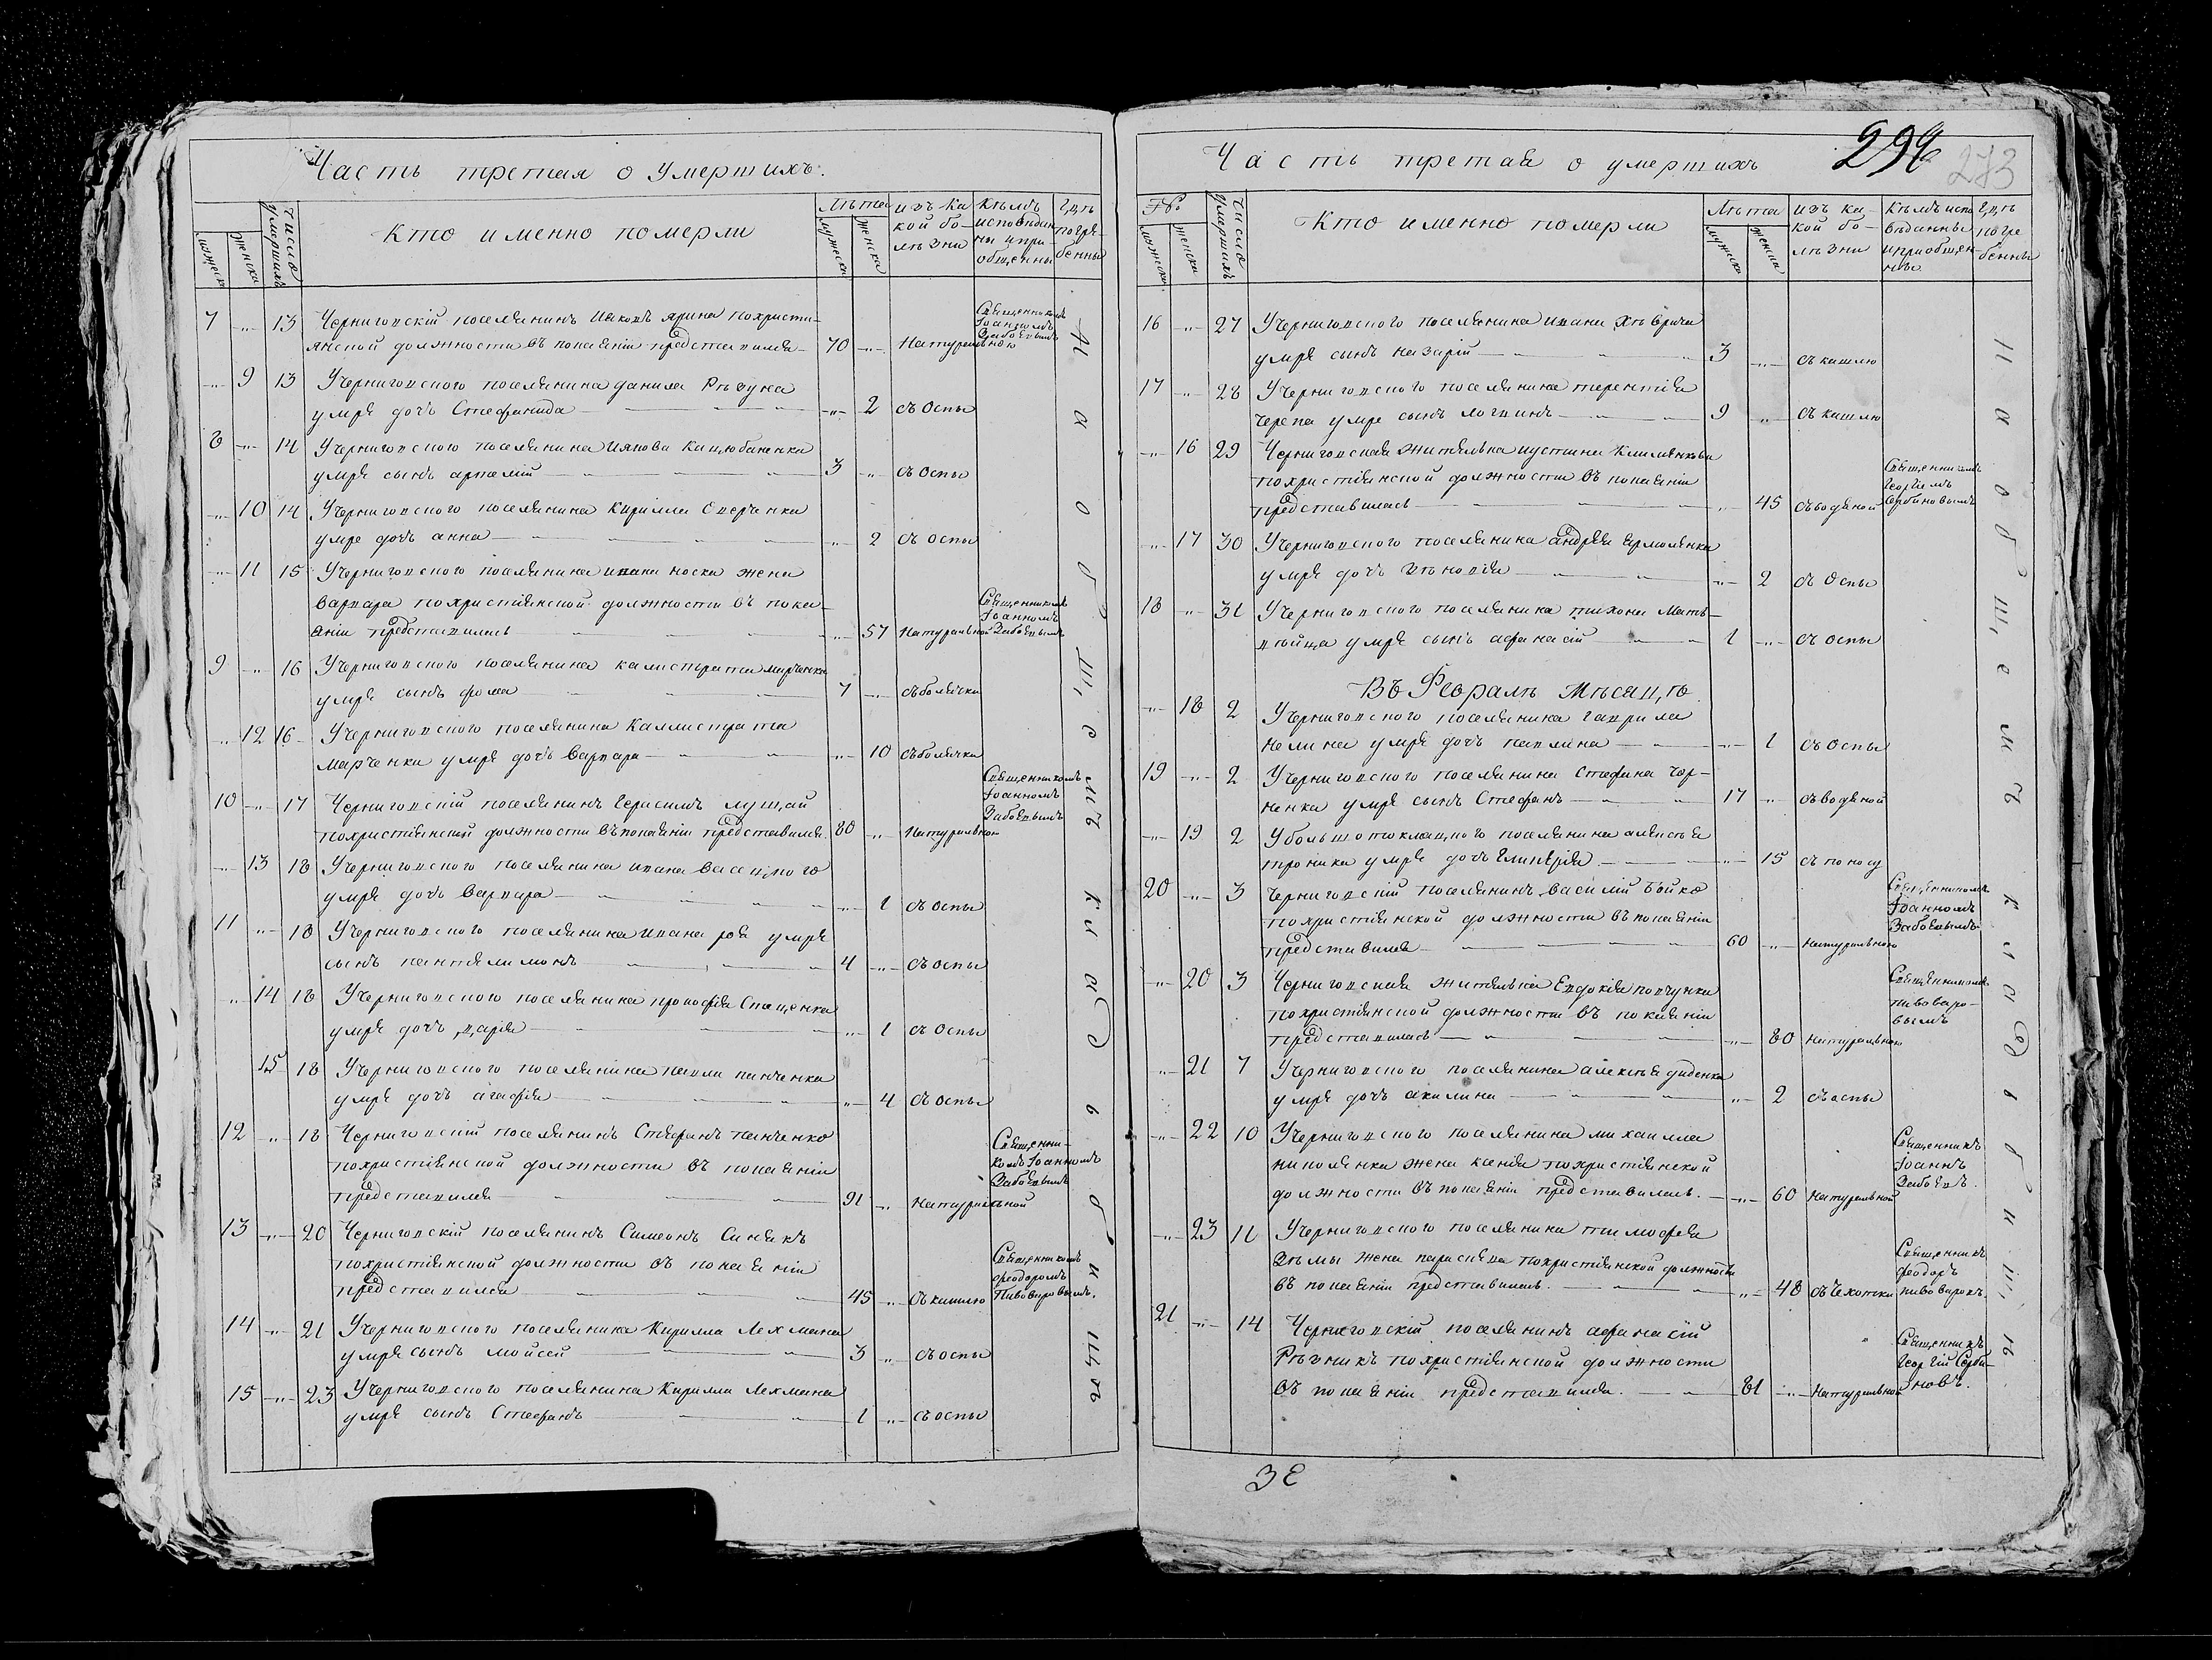 Часть третая о умершихъ.
мужеск женска Число умершихъ Кто именно померли Лѣта мужска женска изъ какой болѣзни Кѣмъ исповѣданы и приобщенны Гдѣ погребенны
7 -„- 13 Черниговскій поселянинъ Иаковъ ярина похристи-
янской должности въ покаяніи представился 70 -„- Натуральною Священникомъ Іоанномъ Забоевымъ
-„- 9 13 У Черниговского поселянина данила Рѣзуна
умре дочь Стефанида -„- 2 съ Оспы
8 -„- 14 У Черниговского поселянина Иякова Кацюбаненка
умре сынъ артемій 3 -„- съ Оспы
-„- 10 14 У Черниговского поселянина Кирилла Сперчанка
умре дочь анна -„- 2 съ оспы
-„- 11 15 У Черниговского поселянина ивана носка жена
варвара похристіянской должности въ пока-
яніи представилась -„- 57 Натуральной Священникомъ Іоанномъ Забоевымъ
9 -„- 16 У Черниговского поселянина калистрата марченка
умре сынъ фома 7 -„- съ болячки
-„- 12 16 У Черниговского поселянина Каллистрата
марченка умре дочь варвара -„- 10 съ болячки
10 -„- 17 Черниговскій поселянинъ Герасимъ лущай
похристіянской должности въ покаяніи представился 80 -„- Натуральной Священникомъ Іоанномъ Забоевымъ
-„- 13 18 У Черниговского поселянина ивана васецного
умре дочь варвара -„- 1 съ оспы
11 -„- 18 У Черниговского поселянина ивана роя умре
сынъ пантелимонъ 4 -„- съ оспы
-„- 14 18 У Черниговского поселянина прокофія Стаценка
умре дочь дарія -„- 1 съ Оспы
15 18 У Черниговского поселянина павла панченка
умре дочь агафія -„- 4 съ Оспы
12 -„- 18 Черниговскій поселянинъ Стефанъ панченко
похристіянской должности въ покаяніи
представился 91 -„- Натуральной Священникомъ Іоанномъ Забоевымъ
13 -„- 20 Черниговскій поселянинъ Симеонъ Синякъ
похристіянской должности въ покаяніи
представился 45 -„- съ кашлю Священникомъ феодоромъ Пивоваровымъ.
14 -„- 21 У Черниговского поселянина Кирилла Лехмана
умре сынъ мойсей 3 -„- съ оспы
15 -„- 23 У Черниговского поселянина Кирилла Лехмана
умре сынъ Стефанъ 1 -„- съ оспы
На общемъ кладбищѣ
Часть третая о умершихъ
273
№. мужеска женска Число умершихъ Кто именно померли Лѣта мужска женска изъ какой болѣзни Кѣмъ исповѣданны и приобщенны Гдѣ погребенны
16 -„- 27 У Черниговского поселянина ивана
умре сынъ назарій 3 -„- съ кашлю
17 -„- 28 У Черниговского поселянина терентія
черепа умре сынъ логвинъ 9 -„- съ кашлю
-„- 16 29 Черниговская жителька иустина Климянкова
похристіянской должности въ покаяніи
представилась -„- 45 съ водяной Священникомъ Георгіемъ Сербиновымъ
-„- 17 30 У Черниговского поселянина андрея ярмоленка
умре дочь зѣновія -„- 2 съ Оспы
18 -„- 31 У Черниговского поселяника тихона Мать-
вюйца умре сынъ афанасій 1 -„- съ оспы
Въ Февралѣ Мѣсяцѣ
-„- 18 2 У Черниговского поселяника гаврила
нелипа умре дочь павлина -„- 1 съ Оспы
19 -„- 2 У Черниговского поселянина Стефана Чор-
ненка умре сынъ Стефанъ 17 -„- съ водяной
-„- 19 2 У большотокмацкого поселянина алексея
троника умре дочь Гликерія -„- 15 съ поносу
20 -„- 3 Черниговскій поселянинъ василій бойко
похристіянской должности въ покаяніи
представился 60 -„- натуральною Священникомъ Іоанномъ Забоевымъ
-„- 20 3 Черниговская жителька Евдокія
похристіянской должности въ покаяніи
представилась -„- 80 натуральною Священникомъ пивоваровымъ
-„- 21 7 У Черниговского поселянина алексѣя диденка
умре дочь акилина -„- 2 съ оспы
-„- 22 10 У Черниговского поселянина михаилла
николенка жена ксенія похристіянской
должности въ покаяніи представилась. -„- 60 Натуральной Священникъ Іоаннъ Забоевъ.
-„- 23 11 У Черниговского поселянина тимофея
зѣмы жена параскева похристіянской должности
въ покаяніи представилась. -„- 48 съ Чехотки Священникъ феодоръ пивоваровъ.
21 -„- 14 Черниговскій поселянинъ афанасій
Рѣзникъ похристіянской должности
въ покаяніи представился. 81 -„- Натуральной Священникъ Георгій Серби-новъ.
На общемъ кладбищѣ